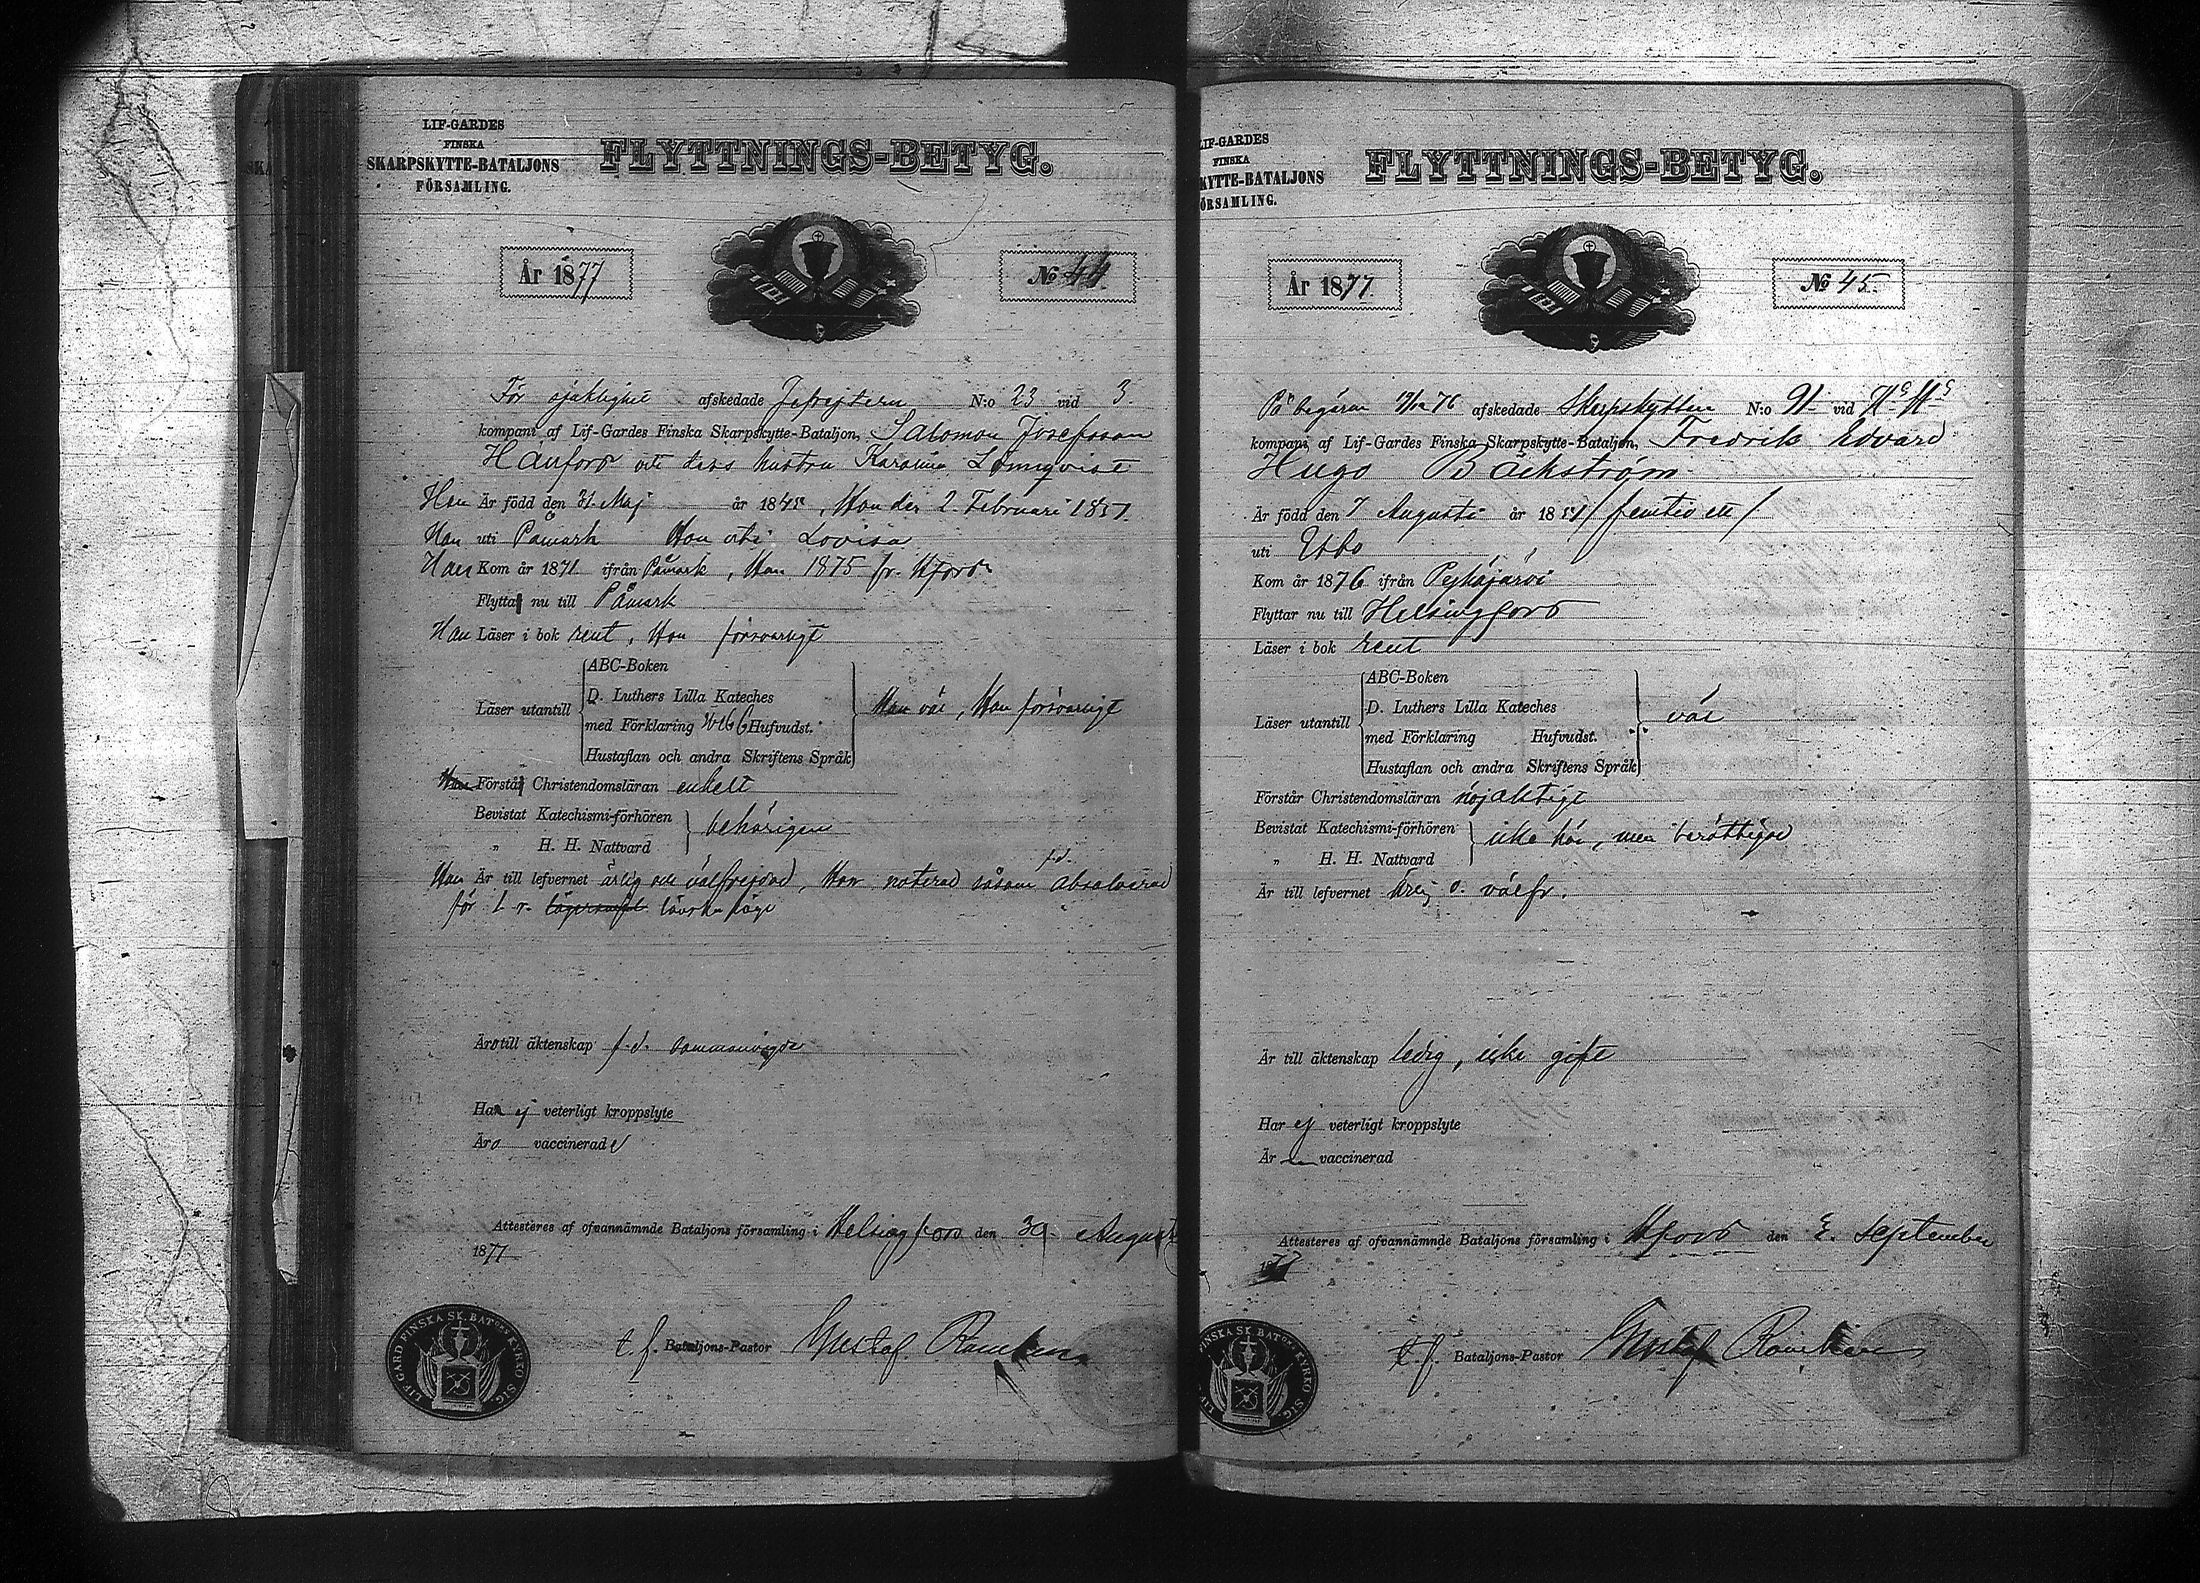 LIF-GARDES
FINSKA
SKARPSKYTTE-BATALJONS
FÖRSAMLING.
FLYTTNINGS-BETYG.
År 1877
No 44
För sjuklighet afskedade Jefrejtern N:o 23 vid 3
kompani af Lif-Gardes Finska Skarpskytte-Bataljon, Salomon Josefsson
Hanfors och dess hustru Karolina Lönnqvist
Han Är född den 31. Maj år 1845, Hon den 2. Februari 1851.
Han uti Påmark Hon uti Lovisa
Han Kom år 1871 ifrån Påmark, Hon 1875 fr. Hfors
Flytta nu till Påmark
Han Läser i bok rent, Hon försvarligt
Läser utantill
ABC-Boken
D. Luthers Lilla Kateches
med Förklaring Hufvudst.
Hustaflan och andra Skriftens Språk
Han väl, Hon försvarligt
Förstå Christendomsläran enkelt
Bevistat Katechismi-förhören
„ H. H. Nattvard
behörigen
Han Är till lefvernet ärlig och välfrejdad, Hon noterad såsom f.d. absolverad
för 1 r. lönskaläge
Äro till äktenskap f.d. sammanvigde
Ha ej veterligt kroppslyte
Äro vaccinerade
Attesteres af ofvannämnde Bataljons församling i Helsingfors den 30. Augusti
1877
t. f. Bataljons-Pastor Gustaf
LIF GARD FINSKA SK. BATNS KYRKO STG.
LIF-GARDES
FINSKA
KYTTE-BATALJONS
ÖRSAMLING.
FLYTTNINGS-BETYG.
År 1877
No 45
På begäran 76 afskedade Skarpskytten N:o 91 vid
kompani af Lif-Gardes Finska Skarpskytte-Bataljon, Fredrik Edvard
Hugo Bäckström
Är född den 7 Augusti år 1851 / femtio ett /
uti Esbo
Kom år 1876 ifrån
Flyttar nu till Helsingfors
Läser i bok rent
Läser utantill
ABC-Boken
D. Luthers Lilla Kateches
med Förklaring Hufvudst.
Hustaflan och andra Skriftens Språk
väl
Förstår Christendomsläran nöjaktigt
Bevistat Katechismi-förhören
„ H. H. Nattvard
icke här, men berättigad
Är till lefvernet o. välfr.
Är till äktenskap ledig, icke gift
Har ej veterligt kroppslyte
Är vaccinerad
Attesteres af ofvannämnde Bataljons församling i Hfors den September
1877
t. f. Bataljons-Pastor Gustaf
FINSKA SK. BATNS KYRKO STG.